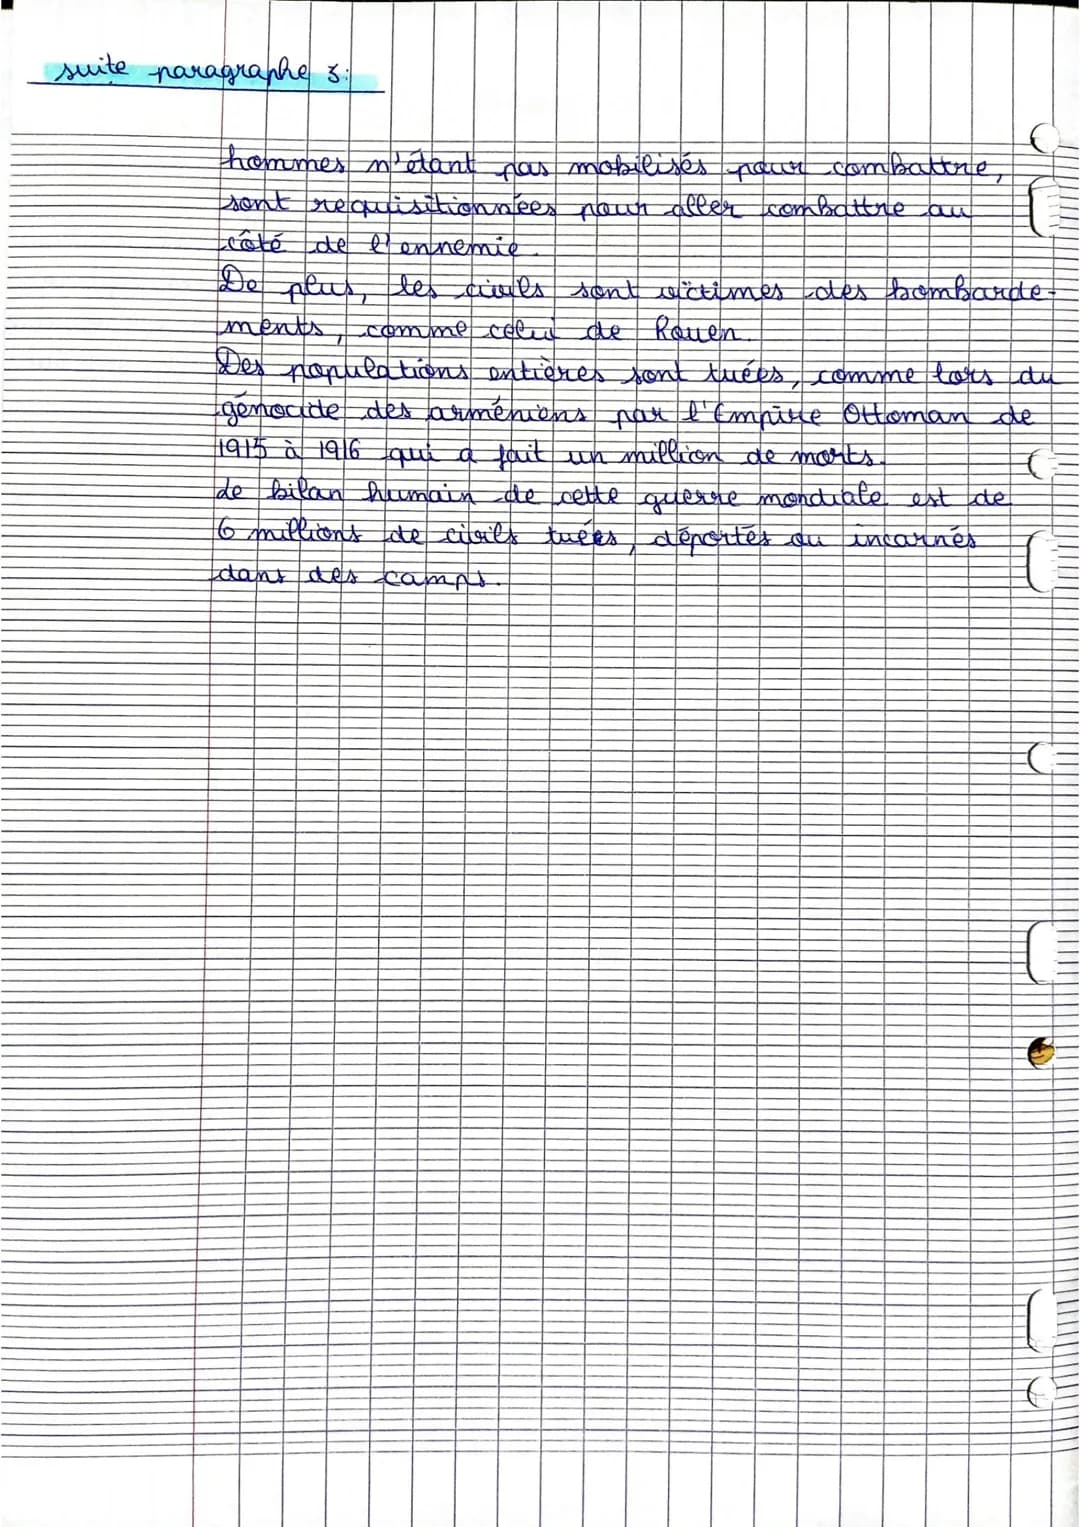 suite paragraphe 3:
hommes n'étant pas mobilisés pour combattre,
sont requisitionnées pour aller combattre au
côté de l'ennemie.
De plus, les civils sont victimes des bombarde-
ments, comme celui de Rouen.
Des populations entières sont tuées, comme lors du
génocide des arméniens par l'Empire Ottoman de
1915 à 1916 qui a fait un million de morts.
Le bilan humain de cette guerre mondiale est de
6 millions de civils tuées, déportés ou incarnés
dans des camps.